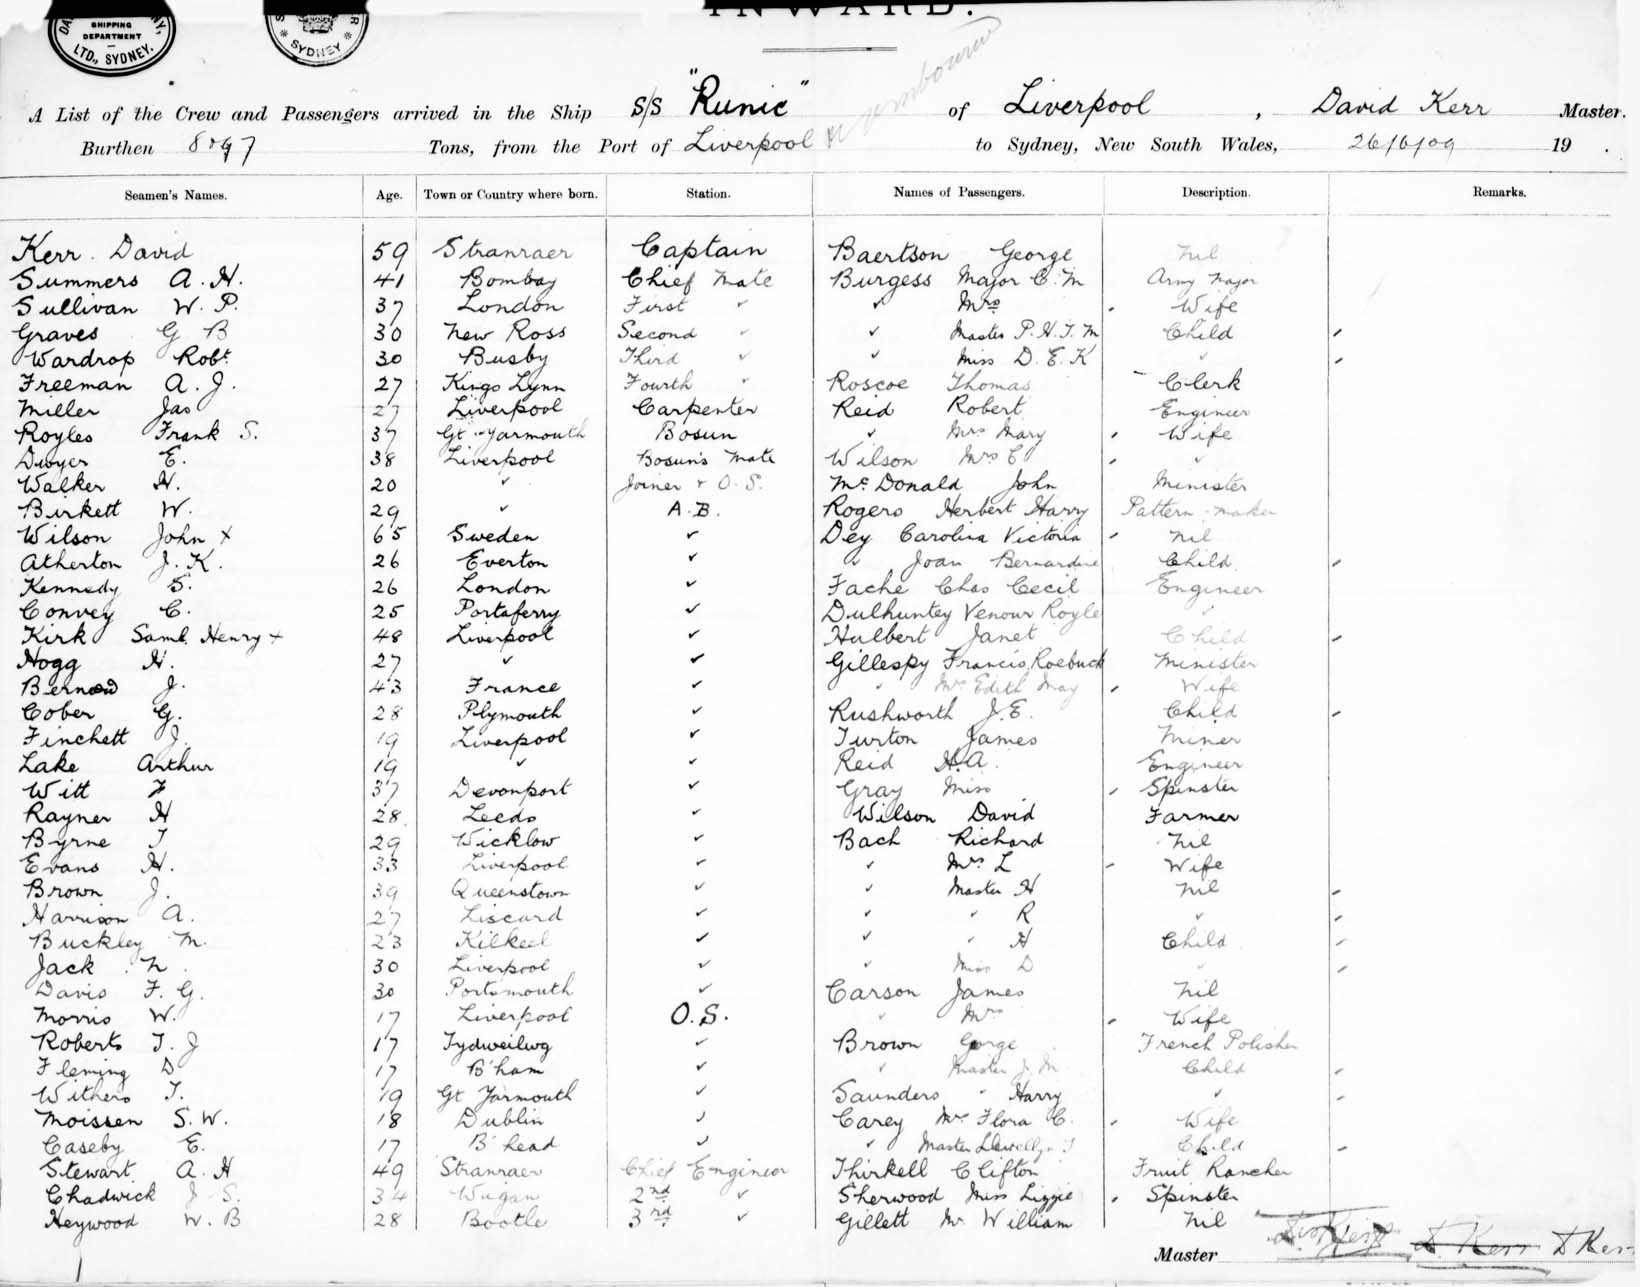 SHIPPING
DEPARTMENT
LTD., SYDNEY.
SYDNEY
INWARD.
A List of the Crew and Passengers arrived in the Ship S/S "Runic" of Liverpool, David Kerr Master.
Burthen Tons, from the Port of Liverpool to Sydney, New South Wales, 26/6/09 19 .
Seamen's Names. Age. Town or Country where born. Station. Names of Passengers. Description. Remarks.
Kerr. David 59 Stranraer Captain Baertson George Nil
Summers A. H. 41 Bombay Chief Mate Burgess Major C. M Army Major
Sullivan W. P. 37 London First " " Mrs Wife
Graves G B 30 New Ross Second " " Master P. H. T. M Child
Wardrop Robt. 30 Busby Third " " Miss D. E. K "
Freeman A. J. 27 Kings Lynn Fourth " Roscoe Thomas Clerk
Miller Jas 27 Liverpool Carpenter Reid Robert Engineer
Royles Frank S. 37 Gt Yarmouth Bosun " Mrs Mary Wife
Dwyer E. 38 Liverpool Bosun's Mate Wilson Mrs C "
Walker H. 20 " Joiner & O. S. McDonald John Minister
Birkett W. 29 " A.B. Rogers Herbert Harry Pattern maker
Wilson John x 65 Sweden " Dey Carolina Victoria Nil
Atherton J. K. 26 Everton " " Joan Bernardine Child
Kennedy S. 26 London " Fache Chas Cecil Engineer
Convey C. 25 Portaferry " Dulhuntey Venour Royle "
Kirk Saml. Henry x 48 Liverpool " Hulbert Janet Child
Hogg H. 27 " " Gillespy Francis Roebuck Minister
Bernard J. 43 France " " Mrs Edith May Wife
Cober G. 28 Plymouth " Rushworth J. E. Child
Finchett J. 19 Liverpool " Turton James Miner
Lake Arthur 19 " " Reid H. A. Engineer
Witt F 37 Devonport " Gray Miss Spinster
Rayner H 28 Leeds " Wilson David Farmer
Byrne T 29 Wicklow " Bach Richard Nil
Evans H. 33 Liverpool " " Mrs L Wife
Brown J. 39 Queenstown " " Master H Nil
Harrison A. 27 Liscard " " " R "
Buckley M. 23 Kilkeel " " " H Child
Jack N. 30 Liverpool " " Miss D "
Davis F. G. 30 Portsmouth " Carson James Nil
Morris W. 17 Liverpool O.S. " Mrs Wife
Roberts T. J 17 Tydweilwg " Brown George French Polisher
Fleming D 17 B'ham " " Master J. M. Child
Withers T. 19 Gt Yarmouth " Saunders " Harry "
Moissen S. W. 18 Dublin " Carey Mrs Flora C. Wife
Caseby E. 17 B'head " " Master Llewellyn T Child
Stewart A. H 49 Stranraer Chief Engineer Thirkell Clifton Fruit Rancher
Chadwick J. S. 34 Wigan 2nd " Sherwood Miss Lizzie Spinster
Heywood W. B 28 Bootle 3rd " Gillett Mr William Nil
Master D. Kerr D Kerr